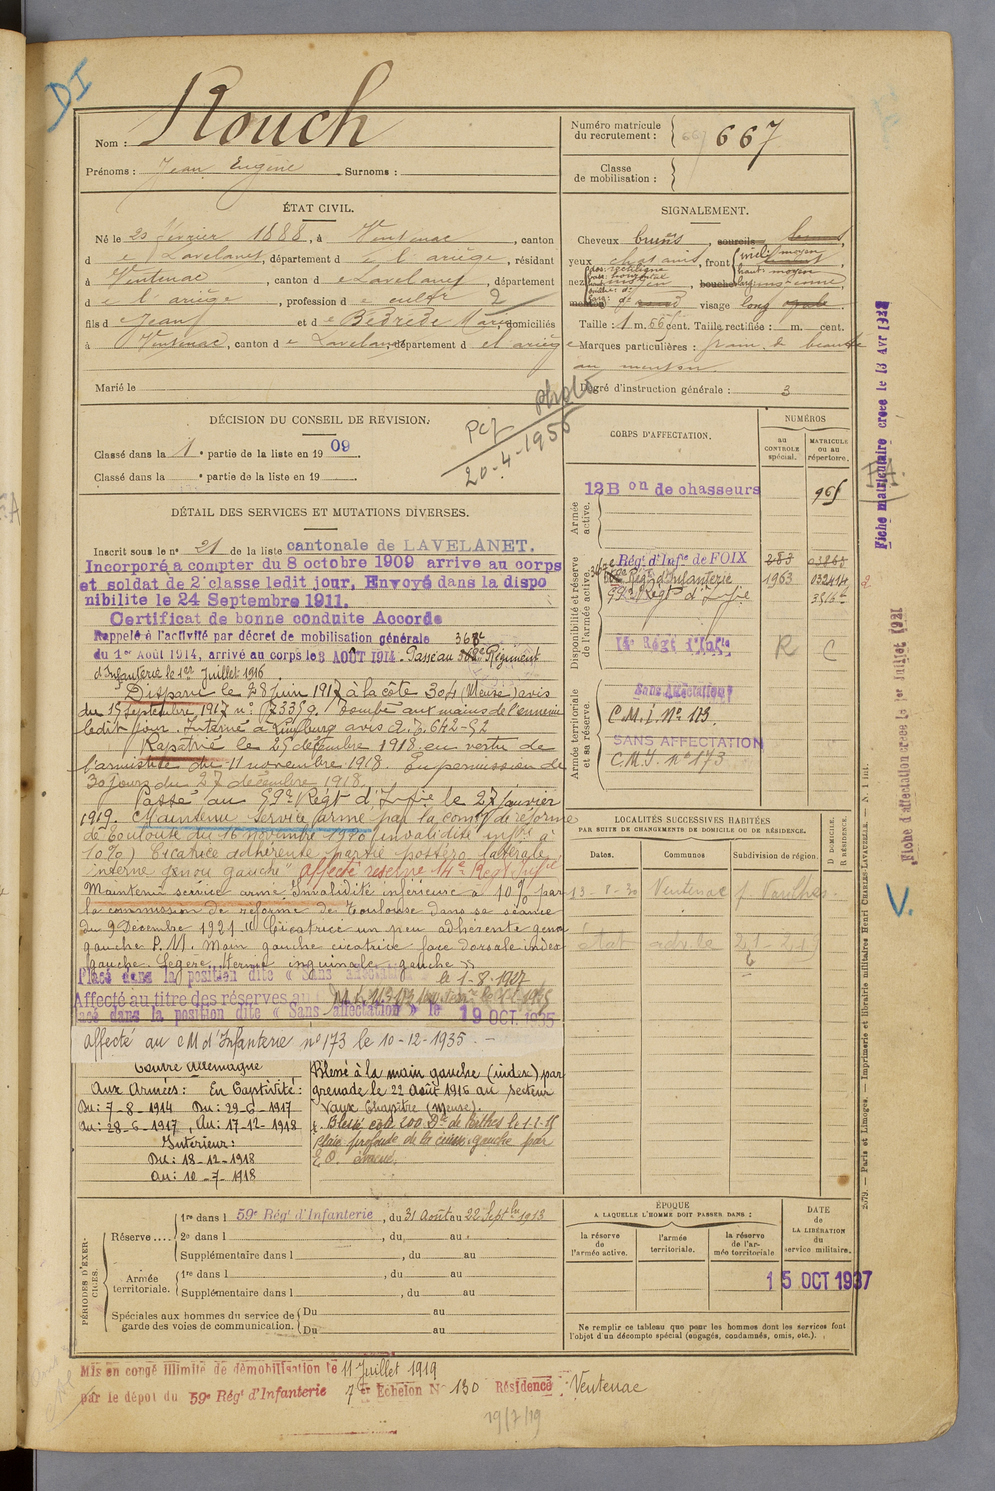 DI
Nom : Rouch
Prénoms : Jean Eugène Surnoms :
Numéro matricule du recrutement : 667
Classe de mobilisation :
ÉTAT CIVIL.
Né le 20 février 1888, à Ventenac, canton
de Lavelanet, département de l'ariège, résidant
à Ventenac, canton de Lavelanet, département
de l'ariège, profession de cultr 2
fils de Jean et de Bédrède Marie, domiciliés
à Ventenac, canton de Lavelanet, département de l'ariège
Marié le
SIGNALEMENT.
Cheveux bruns, sourcils
yeux chatains, front
nez
visage long
Taille : 1 m. 66 cent. Taille rectifiée : m. cent.
Marques particulières : grain de beauté
au menton.
Degré d'instruction générale : 3
DÉCISION DU CONSEIL DE REVISION.
Classé dans la 1e partie de la liste en 1909
Classé dans la e partie de la liste en 19
Pcf photo
20-4-1956
DÉTAIL DES SERVICES ET MUTATIONS DIVERSES.
Inscrit sous le no 21 de la liste cantonale de LAVELANET.
Incorporé a compter du 8 octobre 1909 arrive au corps
et soldat de 2e classe ledit jour, Envoyé dans la dispo
nibilite le 24 Septembre 1911.
Certificat de bonne conduite Accorde
Rappelé à l'activité par décret de mobilisation générale
du 1er Août 1914, arrivé au corps le 8 AOÛT 1914. Passé au 368e Régiment
d'Infanterie le 1er Juillet 1916
Disparu le 28 juin 1917 à la côte 304 (Meuse) avis
du 15 septembre 1917 no 73359. Tombé aux mains de l'ennemi
ledit jour. Interné à Limburg avis 2.F.642-52
Rapatrié le 25 décembre 1918 en vertu de
l'armistite du 11 novembre 1918. En permission de
30 jours du 27 décembre 1918.
Passé au 59e Régt d'Infie le 27 janvier
1919. Maintenu service armé par la comon de réforme
de Toulouse du 16 novembre 1920 invalidité infre à
10% Cicatrice adhérente partie postéro latérale
interne genou gauche" affecté réserve 14e Regt Infie
Maintenu service armé Invalidité inférieure à 10% par
la commission de réforme de Toulouse dans sa séance
du 9 Décembre 1921 "Cicatrice un peu adhérente genou
gauche P.M. Main gauche cicatrice face dorsale index
gauche. Légère Hernie inguinale gauche"
Placé dans la position dite « Sans affectation le 1-8-1927
Affecté au titre des réserves au
lacé dans la position dite « Sans affectation » le 19 OCT. 1935
affecté au CM d'Infanterie no 173 le 10-12-1935. -
Contre Allemagne
Aux Armées : En Captivité :
Du : 7-8-1914 Du : 29-6-1917
Au : 28-6-1917, Au : 17-12-1918
Intérieur :
Du : 18-12-1918
Au : 10-7-1918
Blessé à la main gauche (index) par
grenade le 22 Août 1916 au secteur
Vaux Chapitre (Meuse).
Blessé cote 200 de Perthes le
plaie profonde de la cuisse gauche par
E.O. évacué.
CORPS D'AFFECTATION.
NUMÉROS
AU CONTROLE spécial.
MATRICULE ou au répertoire.
Armée active.
12 Bon de chasseurs 965
Disponibilité et réserve de l'armée active.
Régt d'Infie de FOIX
Rég. d'Infanterie 1963 03244
59e Régt d'Infie
14e Régt d'Infie R C
Armée territoriale et sa réserve.
Sans Affectation
C.M.I. No 173.
SANS AFFECTATION
C.M.I. no 173
LOCALITÉS SUCCESSIVES HABITÉES
PAR SUITE DE CHANGEMENTS DE DOMICILE OU DE RÉSIDENCE.
Dates. Communes Subdivision de région. D DOMICILE. R RÉSIDENCE.
13-8-30 Ventenac
PÉRIODES D'EXERCICES.
Réserve....
1re dans l 59e Rég. d'Infanterie, du 31 Août au 22 Septbre 1913
2e dans l , du au .
Supplémentaire dans l , du au
Armée territoriale.
1re dans l , du au
Supplémentaire dans l , du au
Spéciales aux hommes du service de garde des voies de communication.
Du au
Du au
ÉPOQUE
A LAQUELLE L'HOMME DOIT PASSER DANS :
la réserve de l'armée active.
l'armée territoriale.
la réserve de l'armée territoriale
DATE de LA LIBÉRATION du service militaire.
15 OCT 1937
Ne remplir ce tableau que pour les hommes dont les services font l'objet d'un décompte spécial (engagés, condamnés, omis, etc.).
Mis en congé illimité de démobilisation le 11 Juillet 1919
par le dépôt du 59e Rég. d'Infanterie 7e Echelon No 130 Résidence : Ventenac
19/7/19
Fiche matriculaire créée le 13 Avr
Fiche d'affectation créée le 1er Juillet 1921
V.
2079. — Paris et Limoges. — Imprimerie et librairie militaires Henri CHARLES-LAVAUZELLE. — N. 1 int.